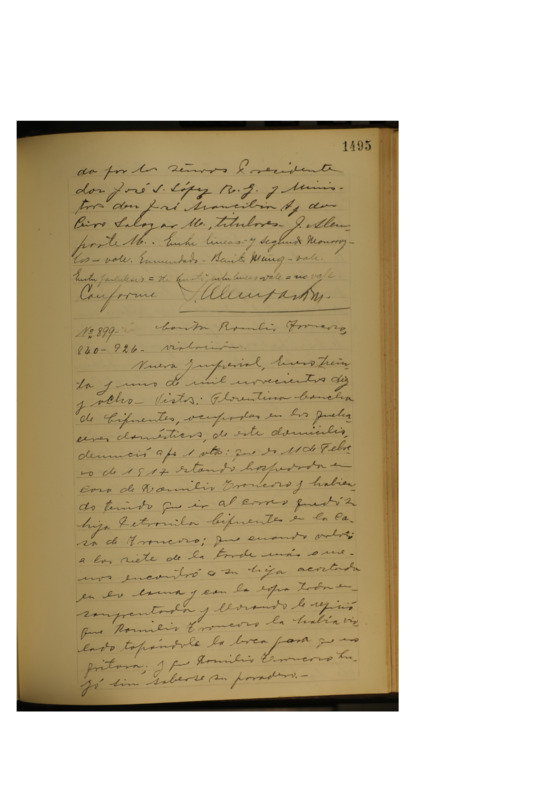 1495
do por los señores Presidente
don José S. López R. G. y Minis-
tros don José Arancibia A. y don
Ciro Salazar M., titulares. J. Alem-
parte M. Entre lineas y segundo Monroy-
los - vale. Enmendado - Benito Muñoz - vale.
Entre
Conforme J. Alemparte M.
Nº 899 contra Ramilio Troncoso,
840-926. violación
Nueva Imperial, Enero trein-
ta y uno de mil novecientos diez
y ocho - Vistos: Florentina
de Cifuentes, ocupada en los queha-
ceres domésticos, de este domicilio,
denunció a fs 1 vta: que el 11 de Febre-
ro de 1917 estando hospedada en
casa de Ramilio Troncoso y habien-
do tenido que ir al correo quedó su
hija Petronila Cifuentes en la ca-
sa de Troncoso; que cuando volvió
a las siete de la tarde más o me-
nos encontró a su hija acostada
en la cama y con la ropa toda en-
sangrentada y llorando le refirió
que Ramilio Troncoso la había vio-
lado tapándole la boca para que no
gritara; y que Ramilio Troncoso hu-
yó sin saberse su paradero.-